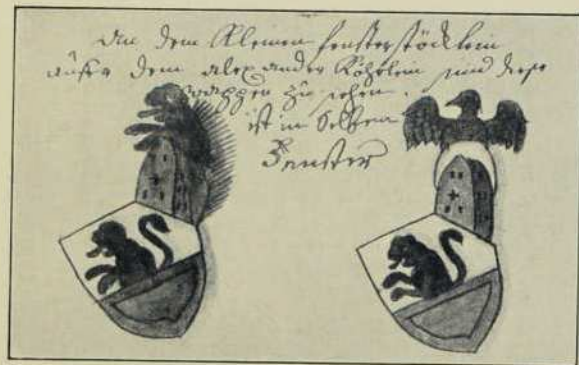 An dem Kleinen fensterstöcklein
dem alexander Köhrlein sind diese
wappen zu sehen.
ist in Selben
Fenster